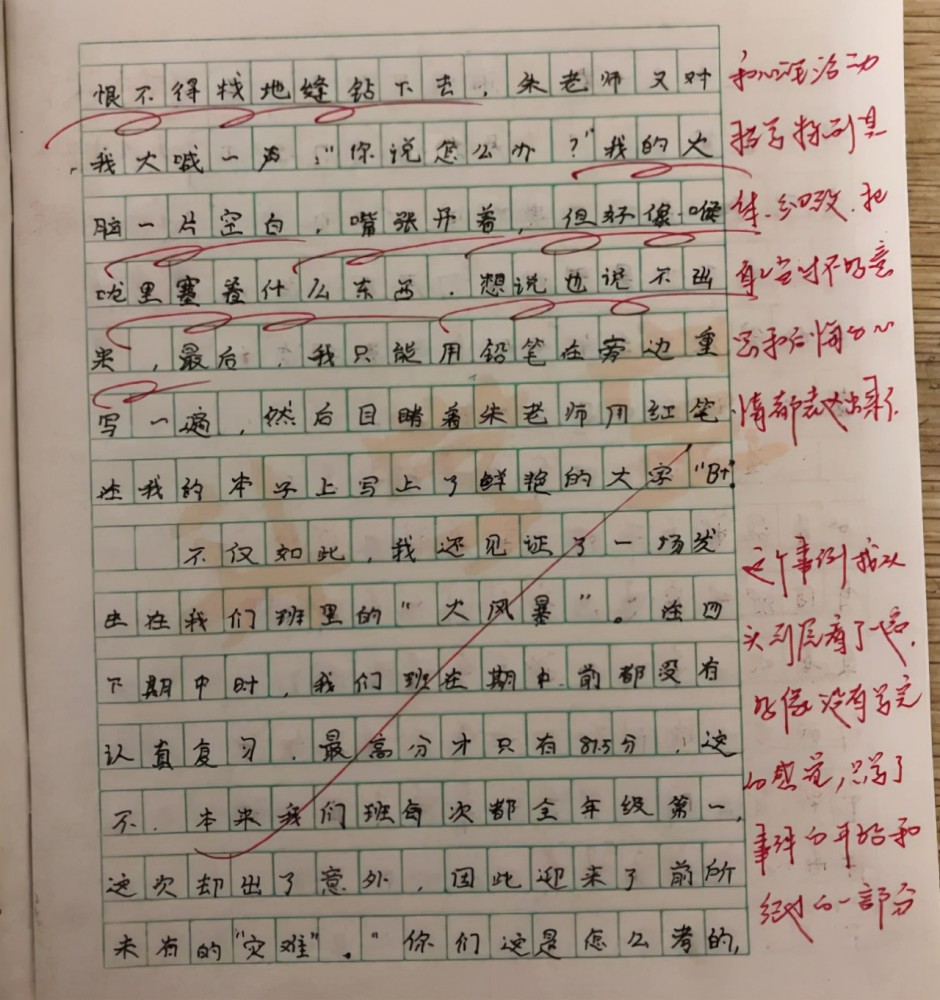 恨不得找地缝钻下去，朱老师又对
我大喊一声："你说怎么办？"我的大
脑一片空白，嘴张开着，但好像喉
咙里塞着什么东西，想说也说不出
来，最后，我只能用铅笔在旁边重
写一遍，然后目睹着朱老师用红笔
在我的本子上写上了鲜艳的大字"B+"
不仅如此，我还见证了一场发
生在我们班里的"大风暴"。在四
下期中时，我们班在期中前都没有
认真复习，最高分才只有87.5分，这
不，本来我们班每次都全年级第一，
这次却出了意外，因此迎来了前所
未有的"灾难"。"你们这是怎么考的，
和心理活动
描写描写得具
体、细致，把
自己当时不好意
思和后悔的心
情都表达出来了
这个事例我从
头到尾看了一遍，
好像没有写完
的感觉，只写了
事件的开始和
经过的一部分